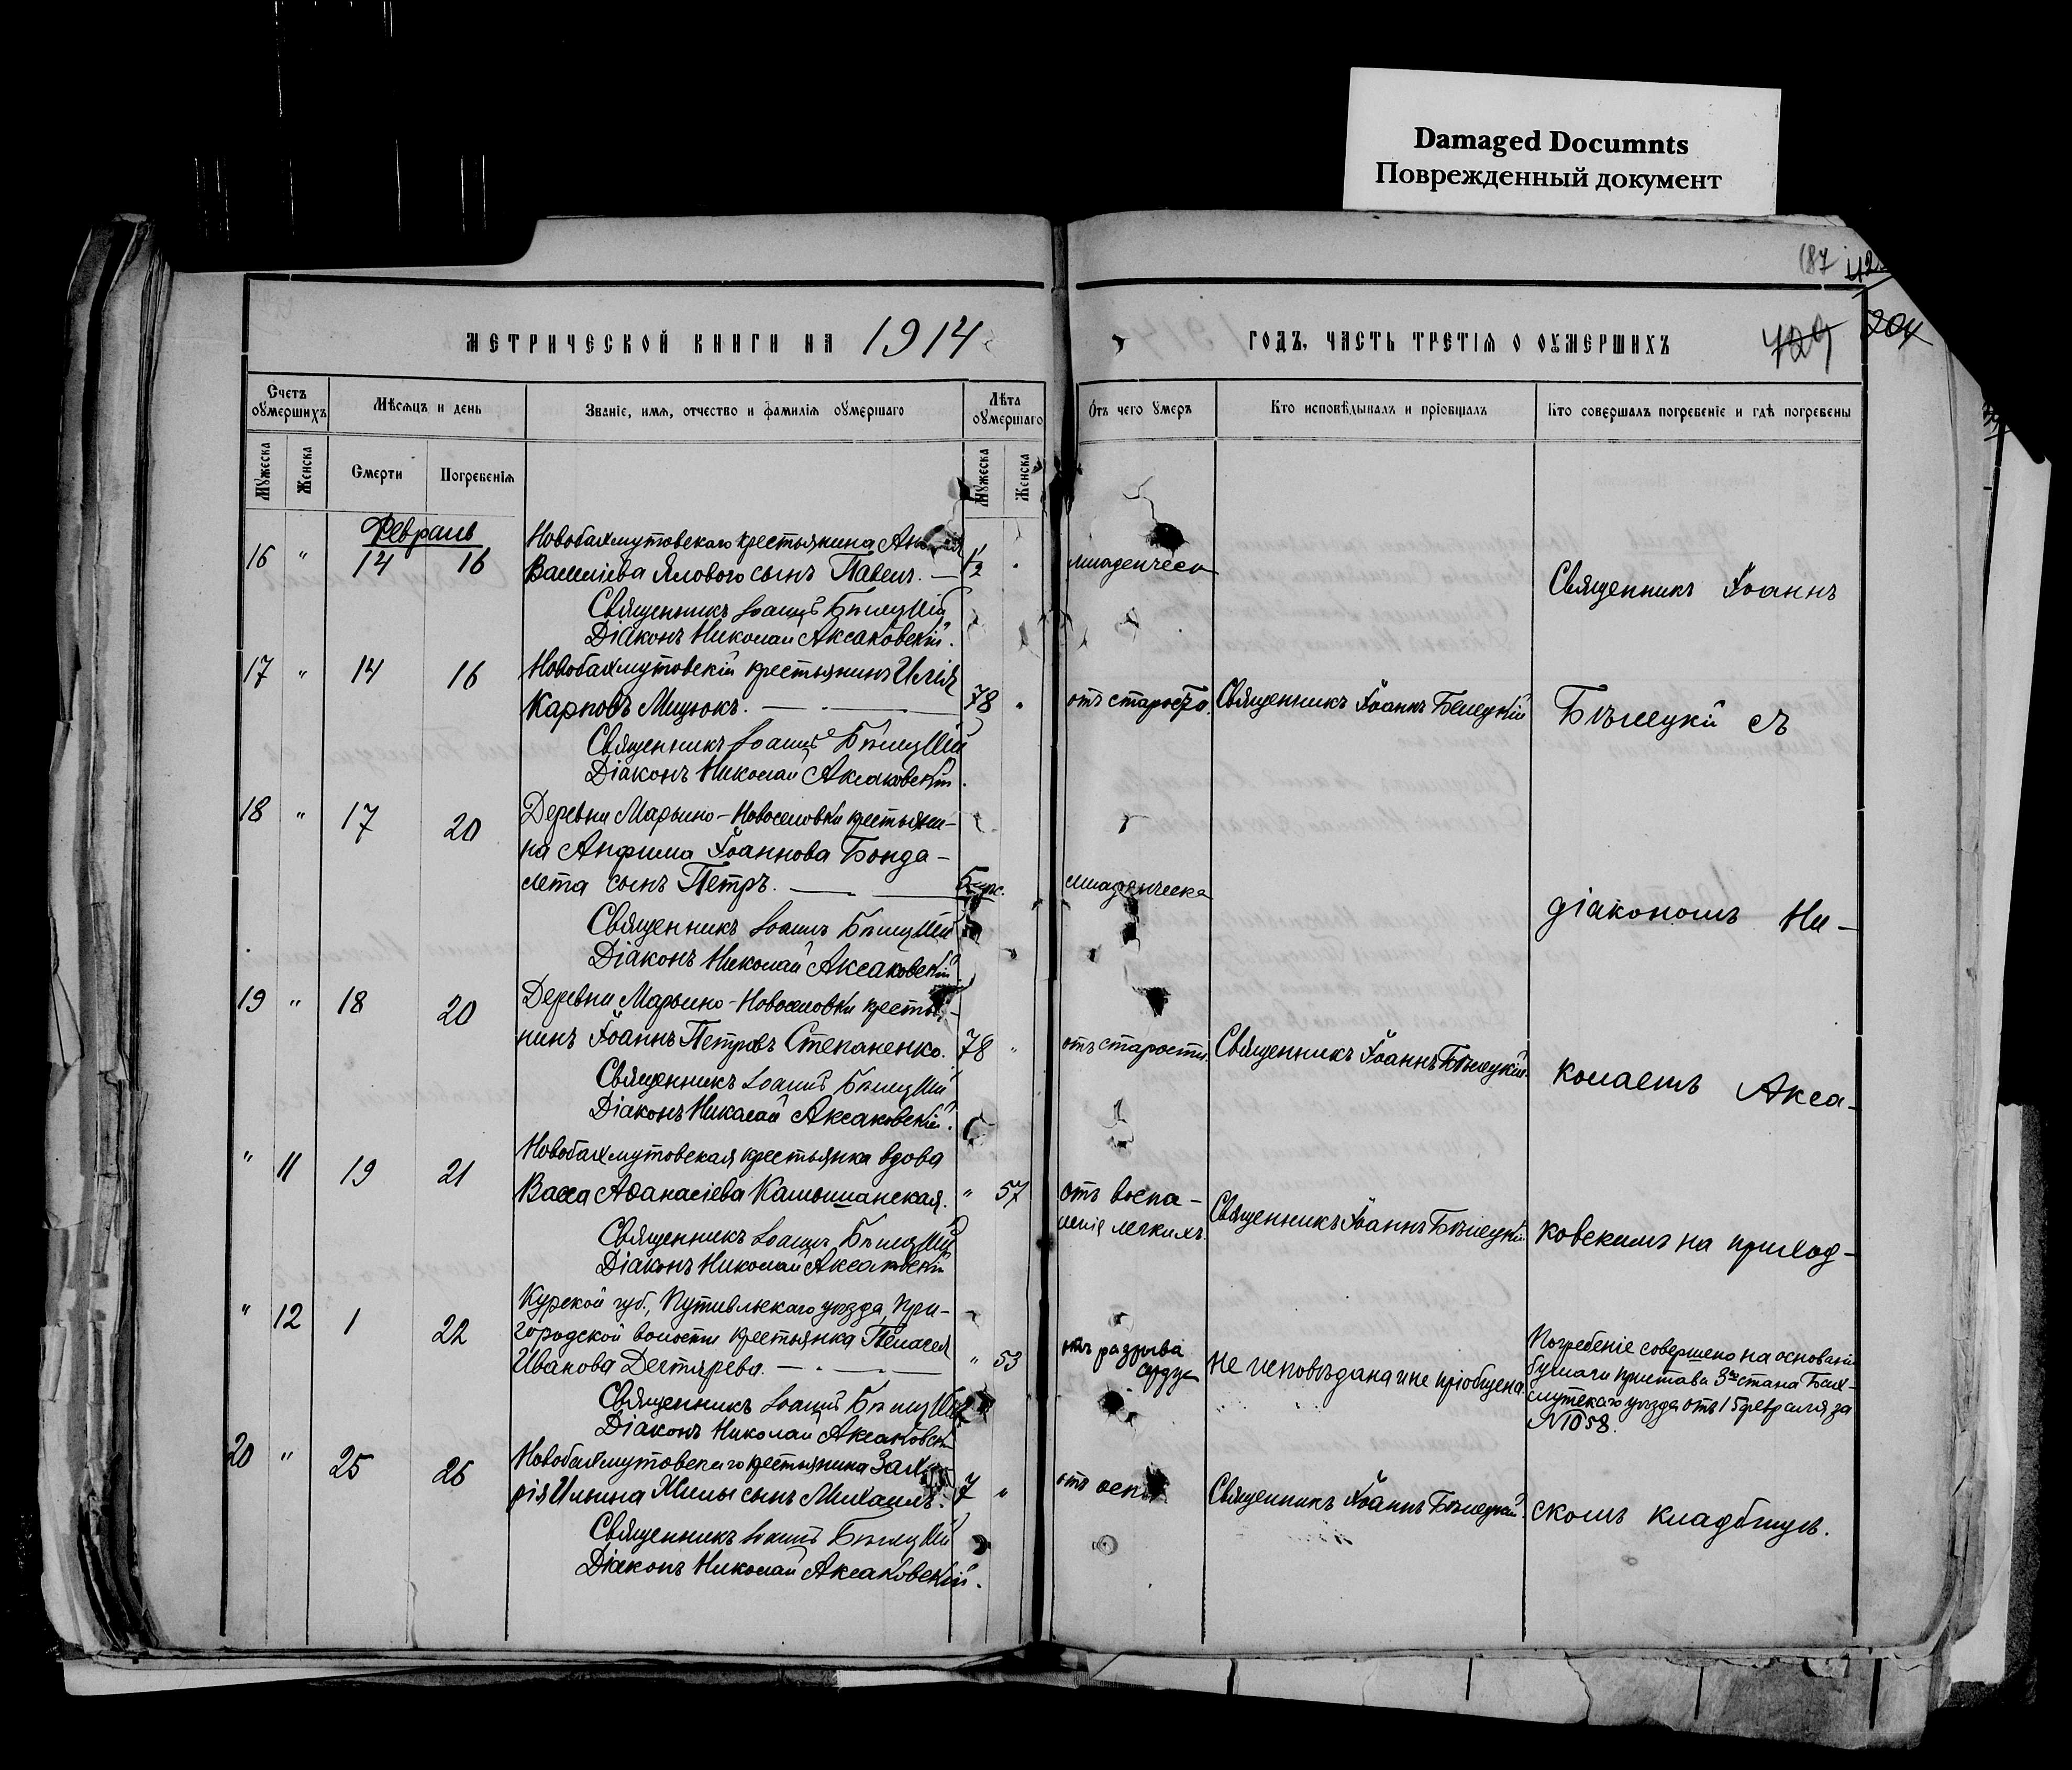 Damaged Documnts
Поврежденный документ
187
204
МЕТРИЧЕСКОЙ КНИГИ НА 1914 ГОДЪ, ЧАСТЬ ТРЕТІЯ О ОУМЕРШИХЪ
429
Счетъ оумершихъ
Мѣсяцъ и день
Званіе, имя, отчество и фамилія оумершаго
Лѣта оумершаго
Отъ чего умеръ
Кто исповѣдывалъ и пріобщалъ
Кто совершалъ погребеніе и гдѣ погребены
Мужеска
Женска
Смерти
Погребенія
Мужеска
Женска
Февраль
16 " 14 16
Новобахмутовскаго крестьянина
Василіева Яловаго сынъ Павелъ. — 1/2 "
младенческ
Священникъ Іоаннъ Бѣлецкій
Діаконъ Николай Аксаковскій.
17 " 14 16
Новобахмутовскій крестьянинъ Илія
Карповъ Мицюкъ. — 78 "
отъ старости. Священникъ Іоаннъ Бѣлецкій
Священникъ Іоаннъ Бѣлецкій
Діаконъ Николай Аксаковскій.
18 " 17 20
Деревни Марьино-Новоселовки крестьяни-
на Анфима Іоаннова Бонда-
лета сынъ Петръ. —
младенческа
Священникъ Іоаннъ Бѣлецкій
Діаконъ Николай Аксаковскій
19 " 18 20
Деревни Марьино-Новоселовки крестья-
нинъ Іоаннъ Петровъ Степаненко. 78 "
отъ старости. Священникъ Іоаннъ Бѣлецкій.
Священникъ Іоаннъ Бѣлецкій
Діаконъ Николай Аксаковскій.
" 11 19 21
Новобахмутовская крестьянка вдова
Васса Аѳанасіева Камышанская. " 57
отъ воспа-
ленія легкихъ. Священникъ Іоаннъ Бѣлецкій
Священникъ Іоаннъ Бѣлецкій
Діаконъ Николай Аксаковскій
" 12 1 22
Курской губ., Путивльскаго уѣзда, При-
городской волости крестьянка Пелагея
Иванова Дегтярева. — " 53
отъ разрыва
сердца
не исповѣдана и не пріобщена
Священникъ Іоаннъ Бѣлецкій
Діаконъ Николай Аксаковскій
20 " 25 26
Новобахмутовскаго крестьянина Заха-
рія Ильина Хилы сынъ Михаилъ. 7 "
отъ осп
Священникъ Іоаннъ Бѣлецкій.
Священникъ Іоаннъ Бѣлецкій
Діаконъ Николай Аксаковскій.
Священникъ Іоаннъ
Бѣлецкій съ
діакономъ Ни-
колаемъ Акса-
ковскимъ на приход-
Погребеніе совершено на основаніи
бумаги пристава 3го стана Бах-
мутскаго уѣзда отъ 15 февраля за
№ 1058.
скомъ кладбищѣ.